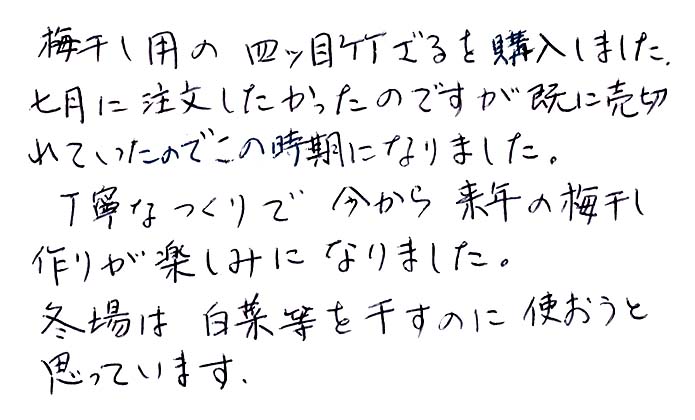 梅干し用の四ッ目竹ざるを購入しました.
七月に注文したかったのですが既に売切
れていたのでこの時期になりました。
丁寧なつくりで今から来年の梅干し
作りが楽しみになりました。
冬場は白菜等を干すのに使おうと
思っています.